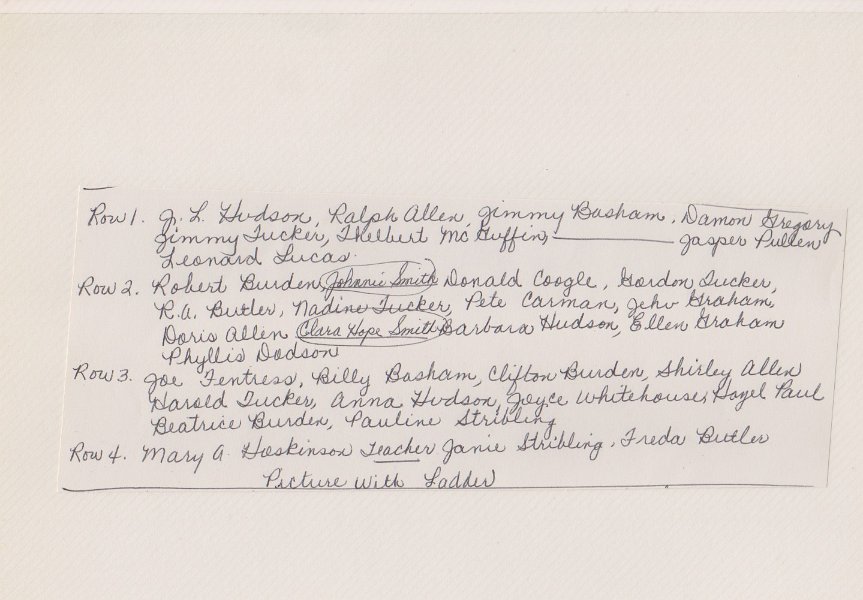 Row 1. J. L. Hudson, Ralph Allen, Jimmy Basham, Damon Gregory
Jimmy Tucker, Thelbert McGuffin, ———— Jasper Pullen
Leonard Lucas.
Row 2. Robert Burden, Johnnie Smith Donald Coogle, Gordon Tucker,
R.A. Butler, Nadine Tucker, Pete Carman, Jehu Graham,
Doris Allen Clara Hope Smith Barbara Hudson, Ellen Graham
Phyllis Dodson
Row 3. Joe Fentress, Billy Basham, Clifton Burden, Shirley Allen
Harold Tucker, Anna Hudson, Joyce Whitehouse, Hazel Paul
Beatrice Burden, Pauline Stribling
Row 4. Mary A. Hoskinson Teacher Janie Stribling, Freda Butler
Picture With Ladder